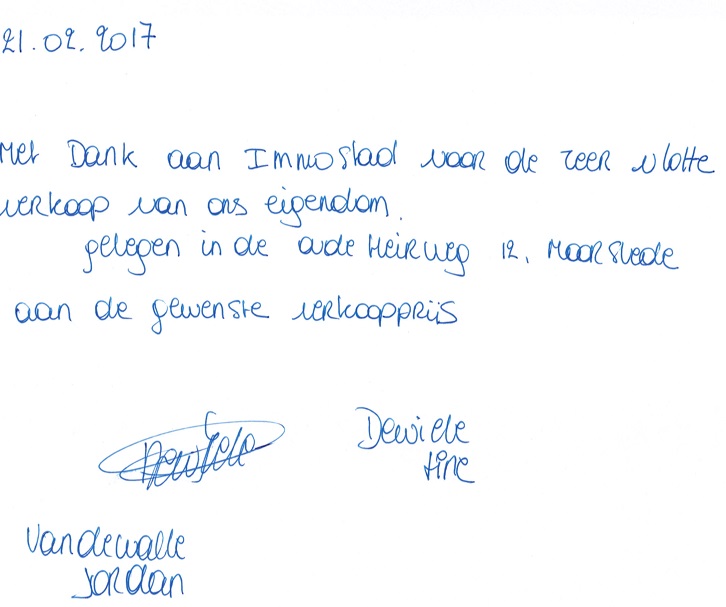 21.02.2017
Met Dank aan Immostad voor de zeer vlotte
verkoop van ons eigendom.
gelegen in de oude Heirweg 12, Moorslede
aan de gewenste verkoopprijs
Dewiele
Dewiele
tine
Vandewalle
Jordan